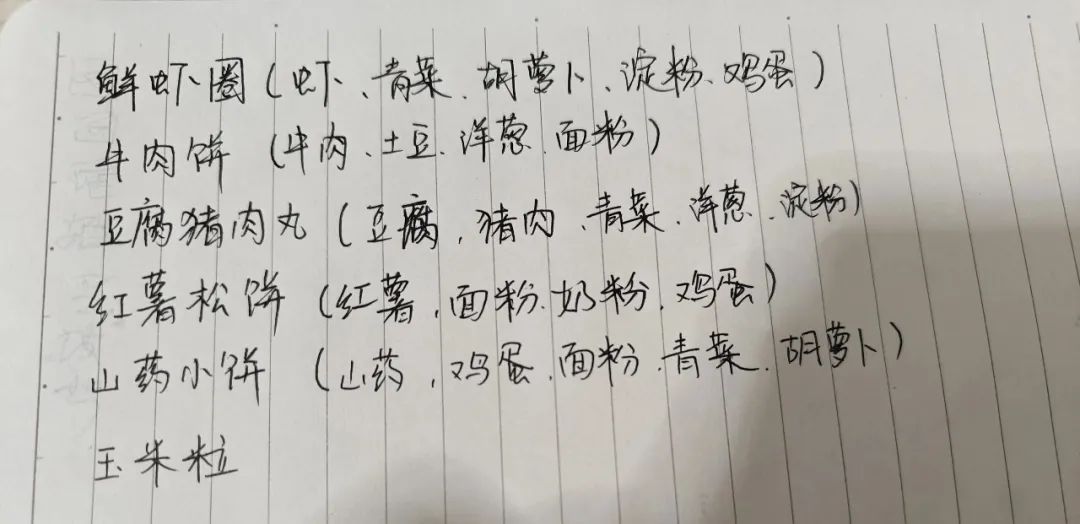 鲜虾圈（虾、青菜、胡萝卜、淀粉、鸡蛋）
牛肉饼（牛肉、土豆、洋葱、面粉）
豆腐猪肉丸（豆腐、猪肉、青菜、洋葱、淀粉）
红薯松饼（红薯、面粉、奶粉、鸡蛋）
山药小饼（山药、鸡蛋、面粉、青菜、胡萝卜）
玉米粒